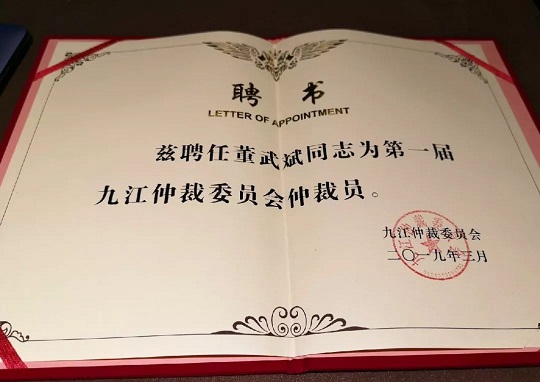 聘 书
LETTER OF APPOINTMENT
兹聘任董武斌同志为第一届
九江仲裁委员会仲裁员。
九江仲裁委员会
二〇一九年三月